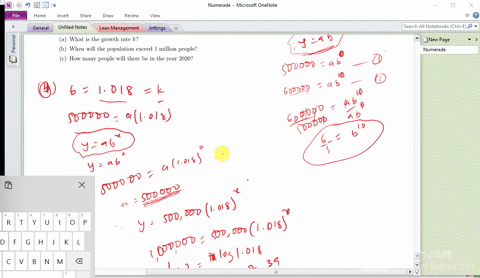 Numerade - Microsoft OneNote
Windows Notes
Unfiled Notes
Lean Management
Training
New Page
Numerade
(a) What is the growth rate k?
(b) When will the population exceed 1 million people?
(c) How many people will there be in the year 2020?
y = ab^x
500000 = ab^0 — ①
600000 = ab^10 — ①
600000/500000 = ab^10/ab^0
6/5 = b^10
④ b = 1.018 = k
500000 = a(1.018)
y = ab^x
y = ab^x
500000 = a(1.018)^0
a = 500000
y = 500,000(1.018)^x
1,000000 = 500,000(1.018)^x
log 1.018
39
R T Y U I O P
D F G H J K L
C V B N M